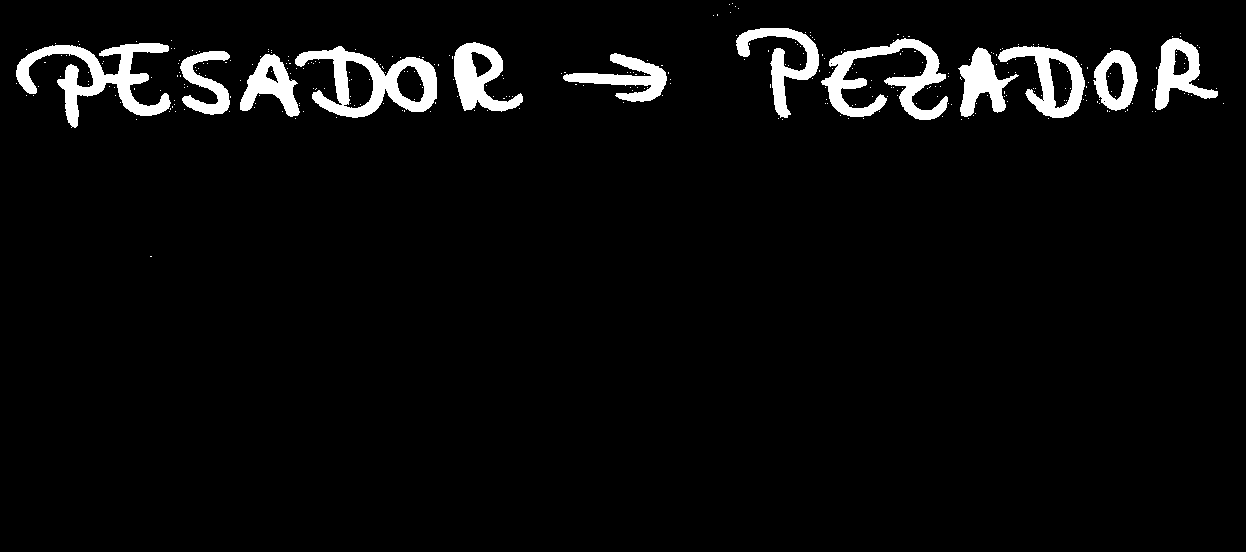 PESADOR → PEZADOR